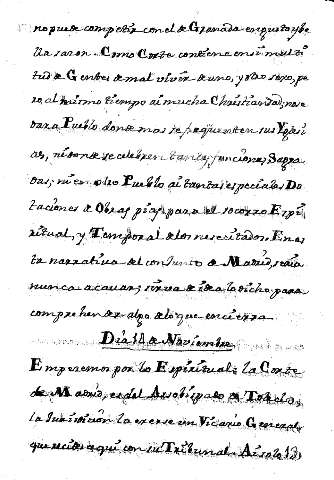 no puede competir con el de Granada en gusto y be
lla sazon. Como Corte contiene en si multi
tud de Gentes de mal vivir de uno, y otro sexo, pe
ro al mismo tiempo ai mucha Christiandad; no se
dara Pueblo donde mas se frequenten sus Yglesi
as, ni donde se celebren tantas funciones Sagra
das; ni en otro Pueblo ai tantas especiales Do
taciones de Obras pias para el socorro Espi
ritual, y Temporal de los necesitados. En es
ta narrativa del conjunto de Madrid, seria
nunca acavar; sirva de idea lo dicho para
comprehender algo de lo que encierra.
Dia 12 de Noviembre
Empecemos por lo Espiritual: la Corte
de Madrid, es del Arzobispado de Toledo,
la Jurisdicion la exerse un Vicario General,
que recide aqui con su Tribunal. Ai solo 13